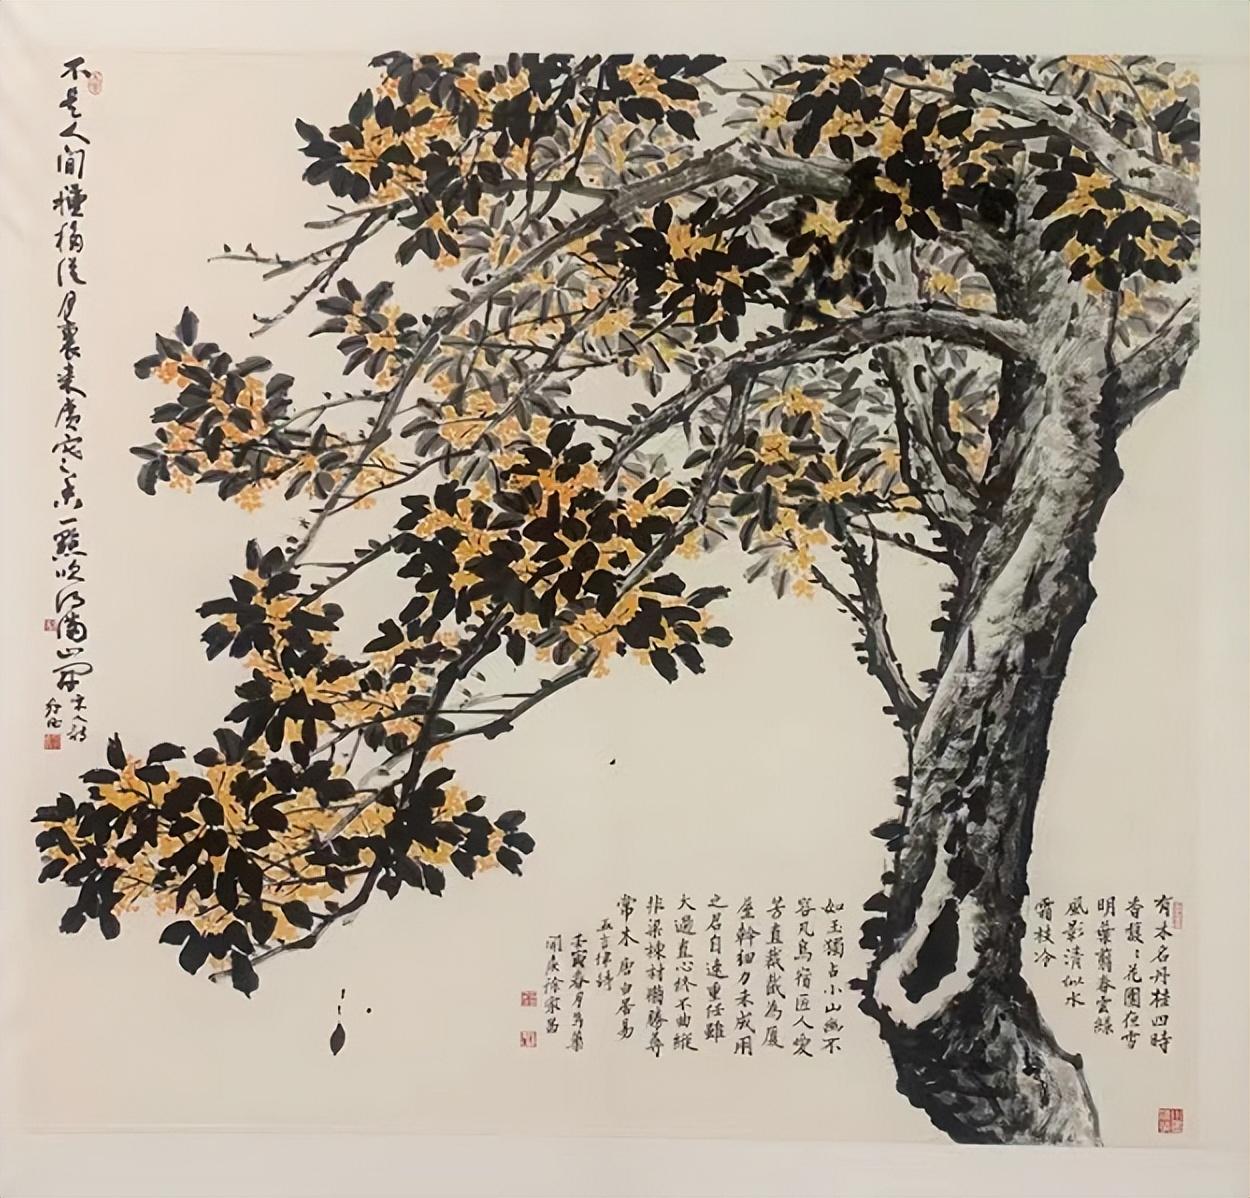 有木名丹桂四時
香馥〻花團夜雪
明葉翦春雲綠
風影清似水
霜枝冷
如玉獨占小山幽不
容凡鳥宿匠人愛
芳直裁截為廈
屋幹細力未成用
之君自速重任雖
大過直心終不曲縱
非梁棟材猶勝尋
常木 唐白居易
五言律詩
壬寅春月
徐家昌
不是人間種移從月裏來廣寒香一點吹得滿山開 宋人詩